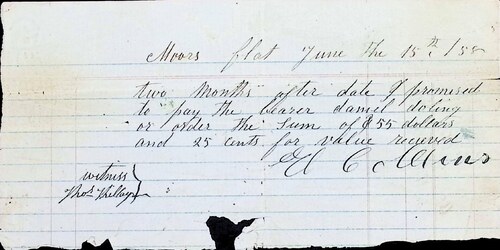 Moors flat June the 15th / 58
two Months after date I promised
to pay the bearer daniel doling
or order the Sum of $55 dollars
and 25 cents for value recieved
witness
Thos Kelley